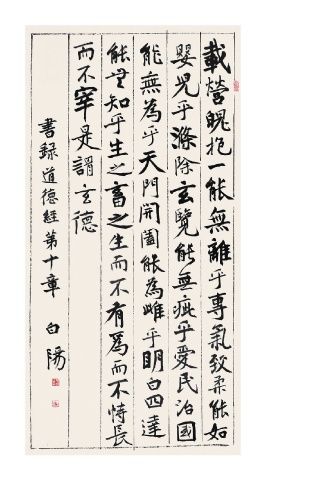 載營魄抱一能無離乎專氣致柔能如
嬰兒乎滌除玄覽能無疵乎愛民治國
能無為乎天門開闔能為雌乎明白四達
能無知乎生之畜之生而不有為而不恃長
而不宰是謂玄德
書録道德經第十章 白陽